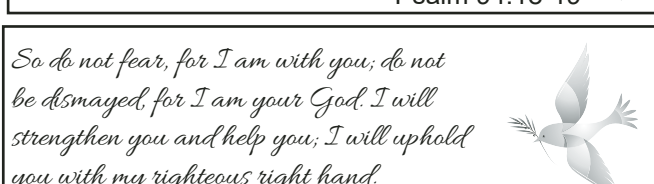 Psalm
So do not fear, for I am with you; do not
be dismayed, for I am your God. I will
strengthen you and help you; I will uphold
you with my righteous right hand.